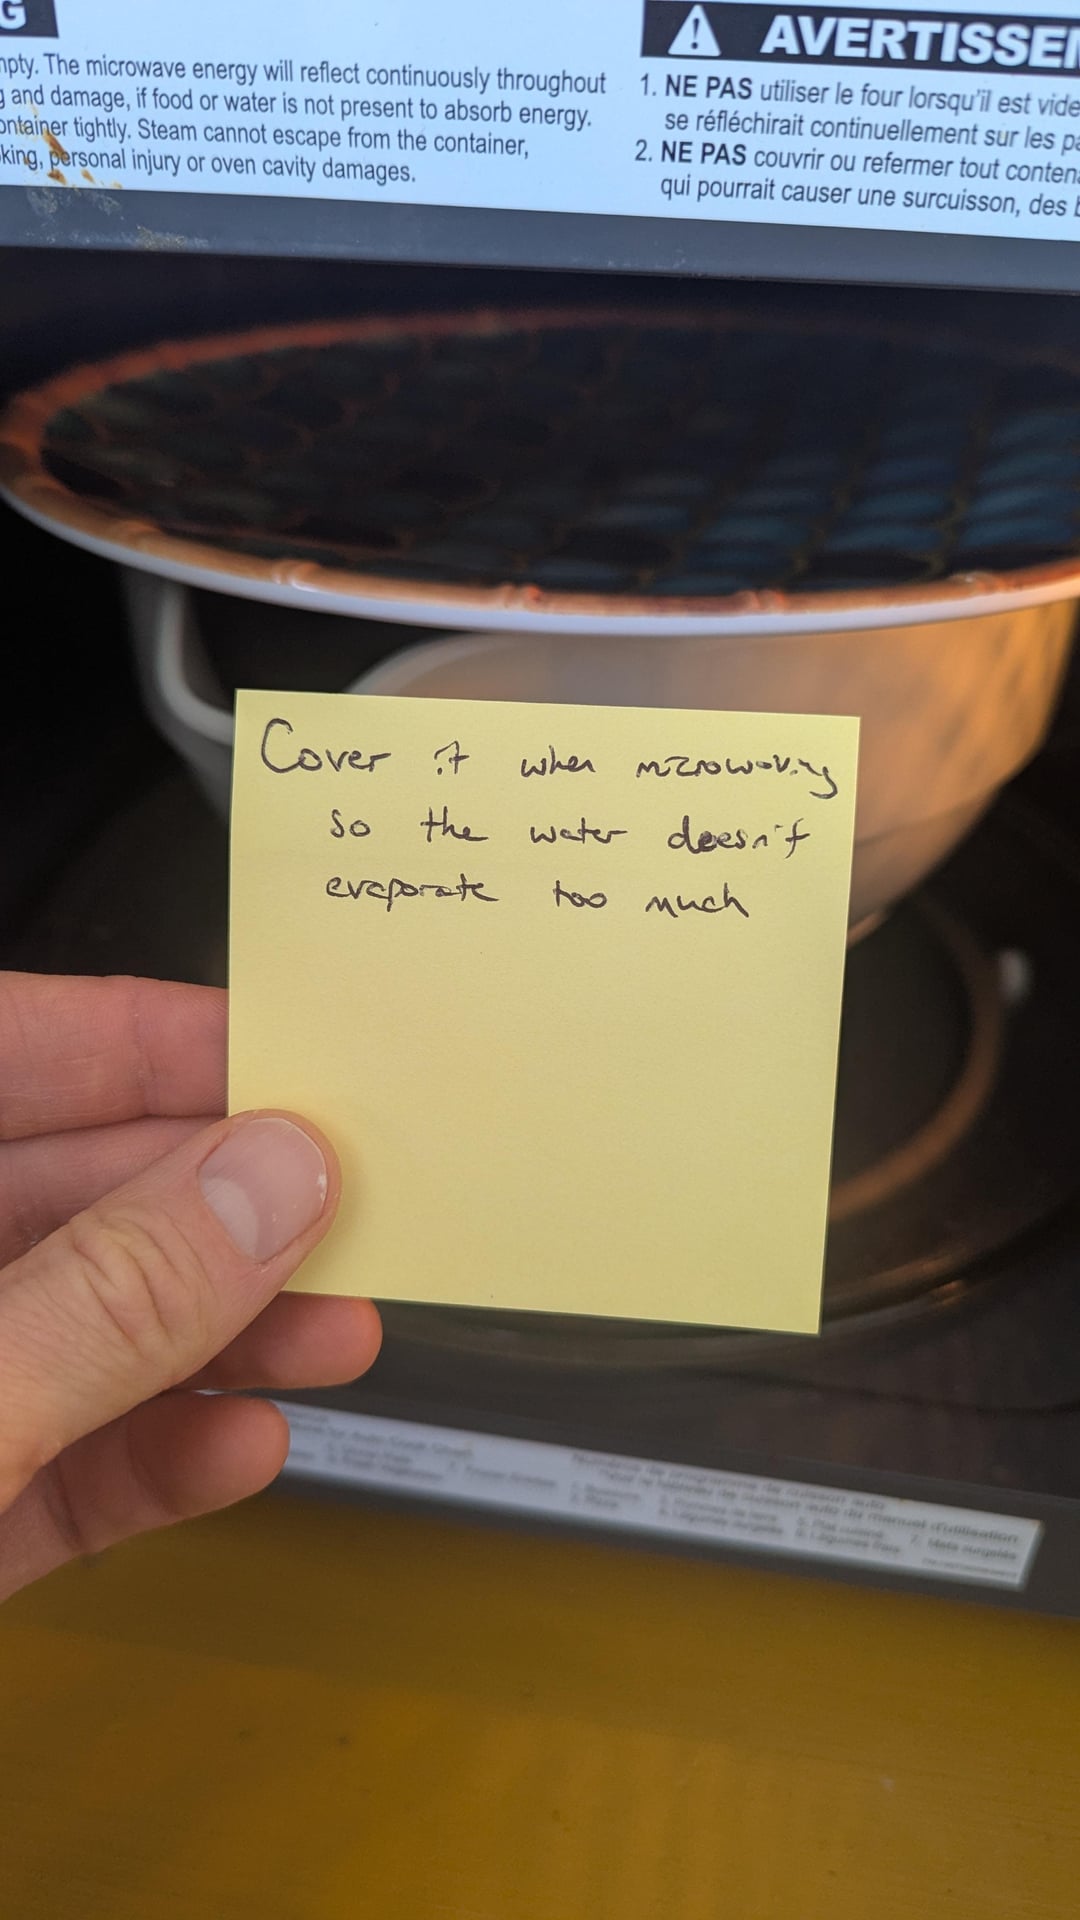 G
AVERTISSE
mpty. The microwave energy will reflect continuously throughout
g and damage, if food or water is not present to absorb energy.
ontainer tightly. Steam cannot escape from the container,
king, personal injury or oven cavity damages.
1. NE PAS utiliser le four lorsqu'il est vide
se réfléchirait continuellement sur les pa
2. NE PAS couvrir ou refermer tout conten
qui pourrait causer une surcuisson, des
Cover it when microwaving
so the water doesn't
evaporate too much